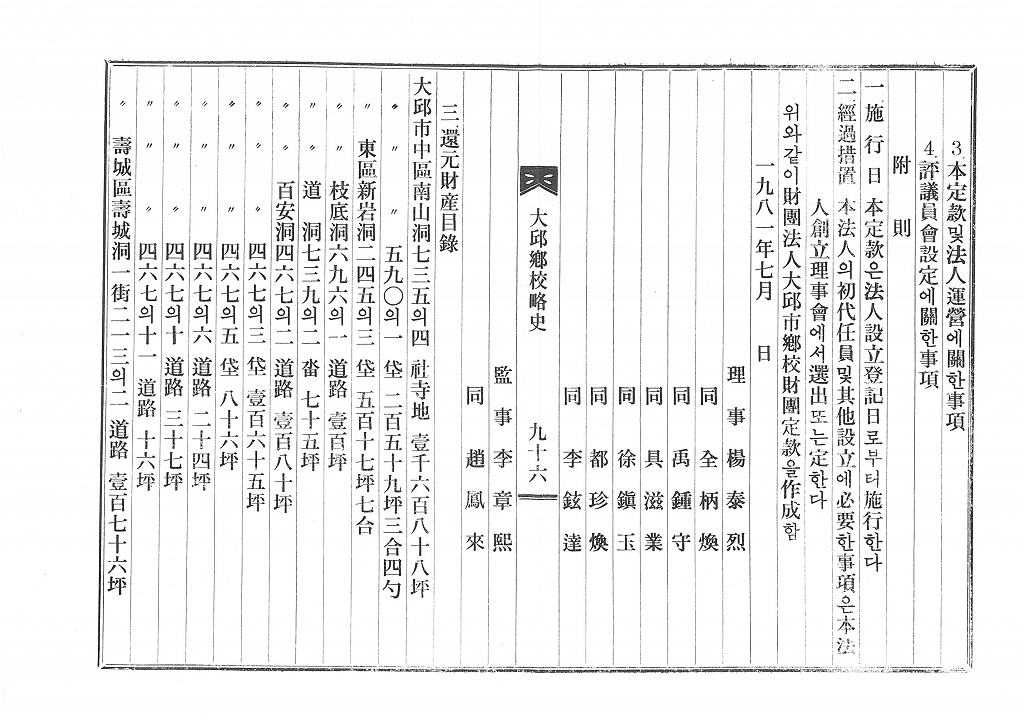 3. 本定款및法人運營에關한事項
4. 評議員會設定에關한事項
附則
一. 施行日 本定款은法人設立登記日로부터施行한다
二. 經過措置 本法人의初代任員및其他設立에必要한事項은本法
人創立理事會에서選出또는定한다
위와같이財團法人大邱市鄕校財團定款을作成함
一九八一年七月 日
理事 楊泰烈
同 全柄煥
同 禹鍾守
同 具滋業
同 徐鎭玉
同 都珍煥
同 李鉉達
大邱鄕校略史 九十六
監事 李章熙
同 趙鳳來
三. 還元財産目錄
大邱市中區南山洞七三五의四 社寺地 壹千六百八十八坪
〃 〃 〃 五九〇의一 垈 二百五十九坪三合四勺
〃 東區新岩洞二四五의三 垈 五百十七坪七合
〃 〃 枝底洞六九六의一 道路 壹百坪
〃 〃 道洞七三九의二 畓 七十五坪
〃 〃 百安洞四六七의二 道路 壹百八十坪
〃 〃 〃 四六七의三 垈 壹百六十五坪
〃 〃 〃 四六七의五 垈 八十六坪
〃 〃 〃 四六七의六 道路 二十四坪
〃 〃 〃 四六七의十 道路 三十七坪
〃 〃 〃 四六七의十一 道路 十六坪
〃 壽城區壽城洞一街二一三의二 道路 壹百七十六坪